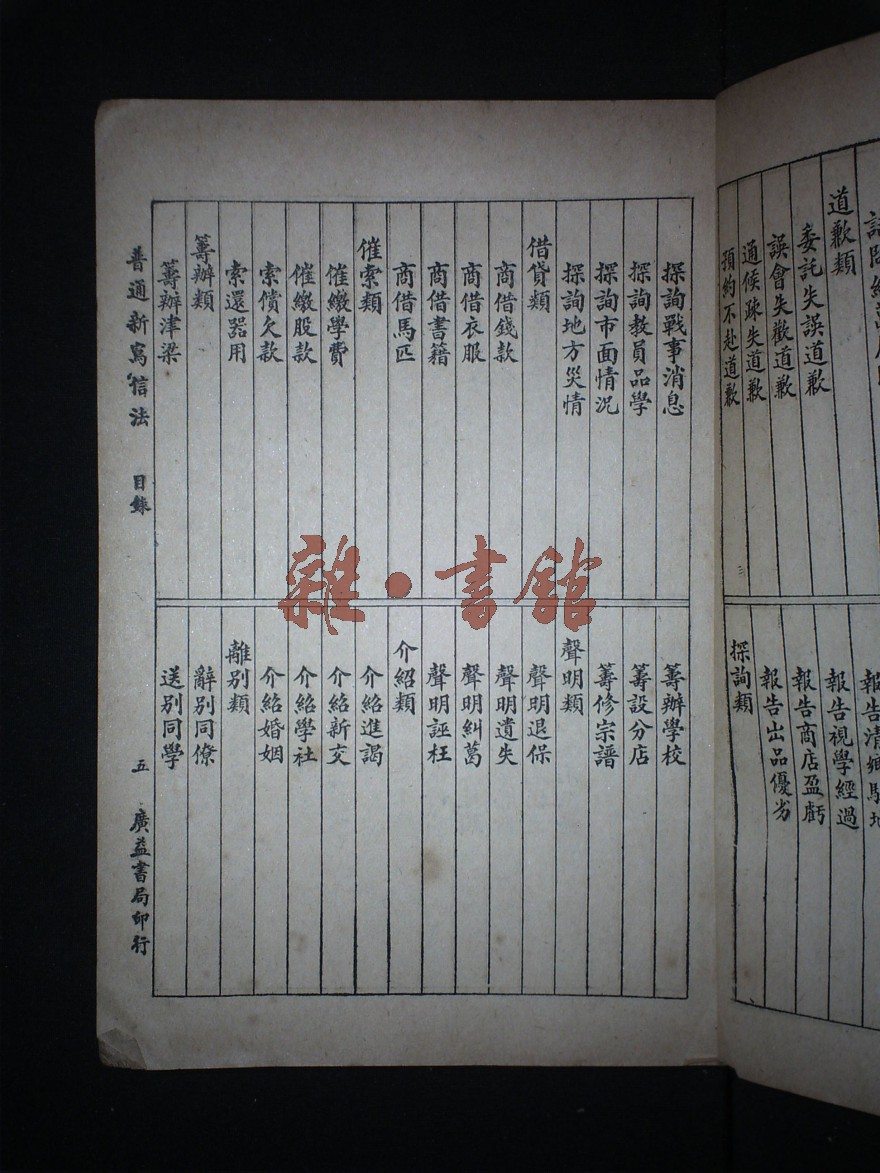 道歉類
委託失誤道歉
誤會失歡道歉
通候疎失道歉
預約不赴道歉
三
報告視學經過
報告商店盈虧
報告出品優劣
探詢類
探詢戰事消息
探詢教員品學
探詢市面情況
探詢地方災情
借貸類
商借錢款
商借衣服
商借書籍
商借馬匹
催索類
催繳學費
催繳股款
索償欠款
索還器用
籌辦類
籌辦津梁
籌辦學校
籌設分店
籌修宗譜
聲明類
聲明退保
聲明遺失
聲明糾葛
聲明誣枉
介紹類
介紹進謁
介紹新交
介紹學社
介紹婚姻
離別類
辭別同僚
送別同學
普通新寫信法 目錄
五
廣益書局印行
雜·書館